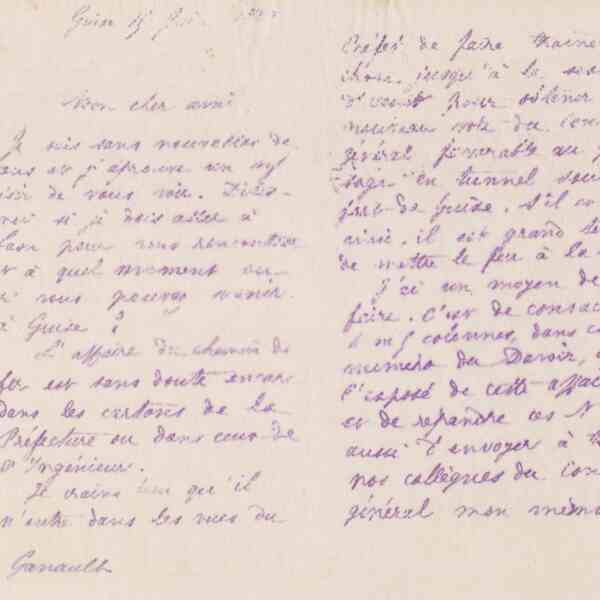 Guise 15 Juin
Mon cher ami
Je suis sans nouvelles de
vous et j'éprouve un vif
désir de vous voir. Dites-
moi si je dois aller à
Laon pour vous rencontrer
et à quel moment ou
si vous pouvez venir
à Guise ?
L'affaire du chemin de
fer est sans doute encore
dans les cartons de la
Préfecture ou dans ceux de
l'Ingénieur.
Je crains qu'il
n'entre dans les vues du
Ganault
Préfet de faire traine
chose jusqu'à la ses
d'août pour obtenir
nouveau vote du Con
général favorable au p
sage en tunnel sou
fort de Guise. S'il es
ainsi, il est grand te
de mettre le feu à la
J'ai un moyen de
faire. C'est de consac
colonnes, dans
numéro du Devoir,
l'exposé de cette affai
et de répandre ces N
aussi d'envoyer à
nos collègues du Con
général mon mémo